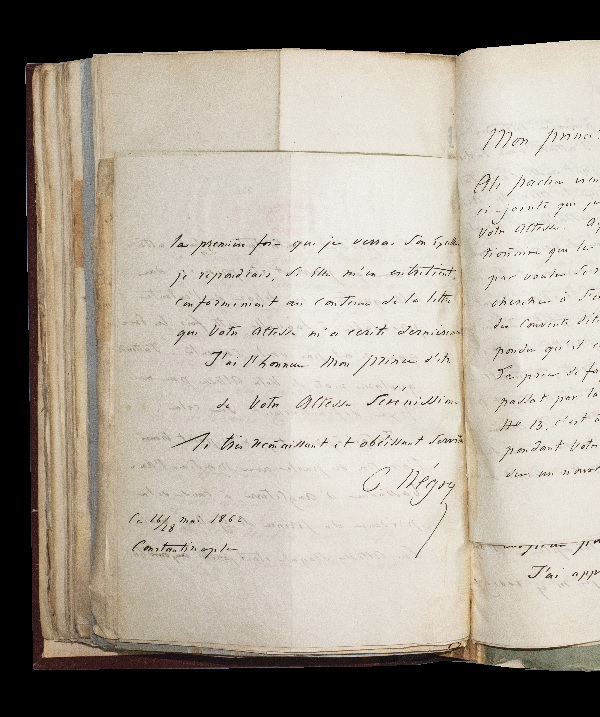 la première fois que je verrai Son Excelle
je repondrais, si Elle m'en entretient,
conformement au contenu de la lettre
que Votre Altesse m'a ecrit dernierement
J'ai l'honneur Mon prince d'etre
de Votre Altesse Serénissime
le très reconnaissant et obéissant Servit
C. Négry
Ce 16/28 mai 1862
Constantinople
Mon prince
Ali pacha vien
ci-jointe que je
Votre Altesse.
tionnaire que le
par voulu se r
chercher à
des Couvents
pondu qu'il
Je prie de
passat par la
No 13, c'est à
pendant Votre
der un nouve
J'ai app